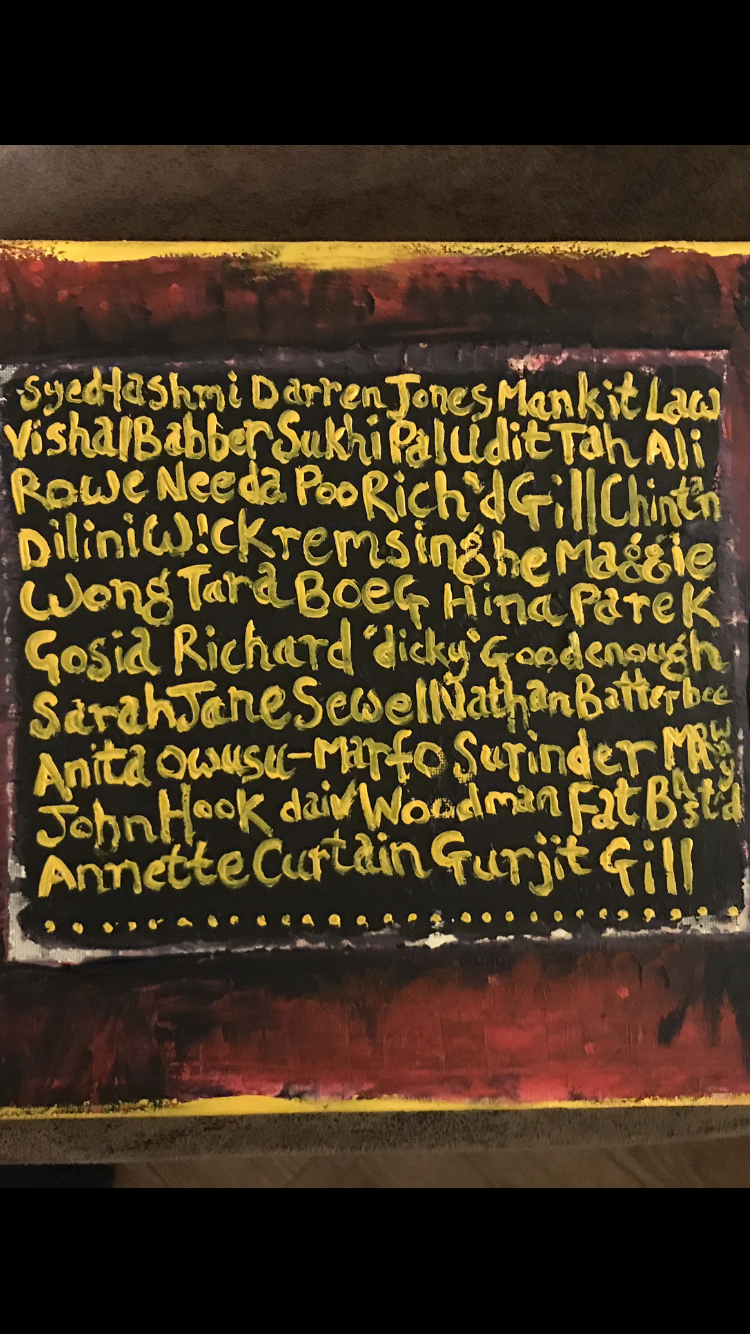 Syed Hashmi Darren Jones Mankit Law
Vishal Babber Sukhi Pal Udit Tah Ali
Rowe Needa Poo Rich'd Gill Chintan
Dilini W!ckremsinghe Maggie
Wong Tara BoeG Hina Parek
Gosia Richard "dicky" Goodenough
Sarah Jane Sewell Nathan Batterbee
Anita Owusu-Marfo Surinder MAwsy
John Hook daiv Woodman Fat BAstd
Annette Curtain Gurjit Gill
...................................